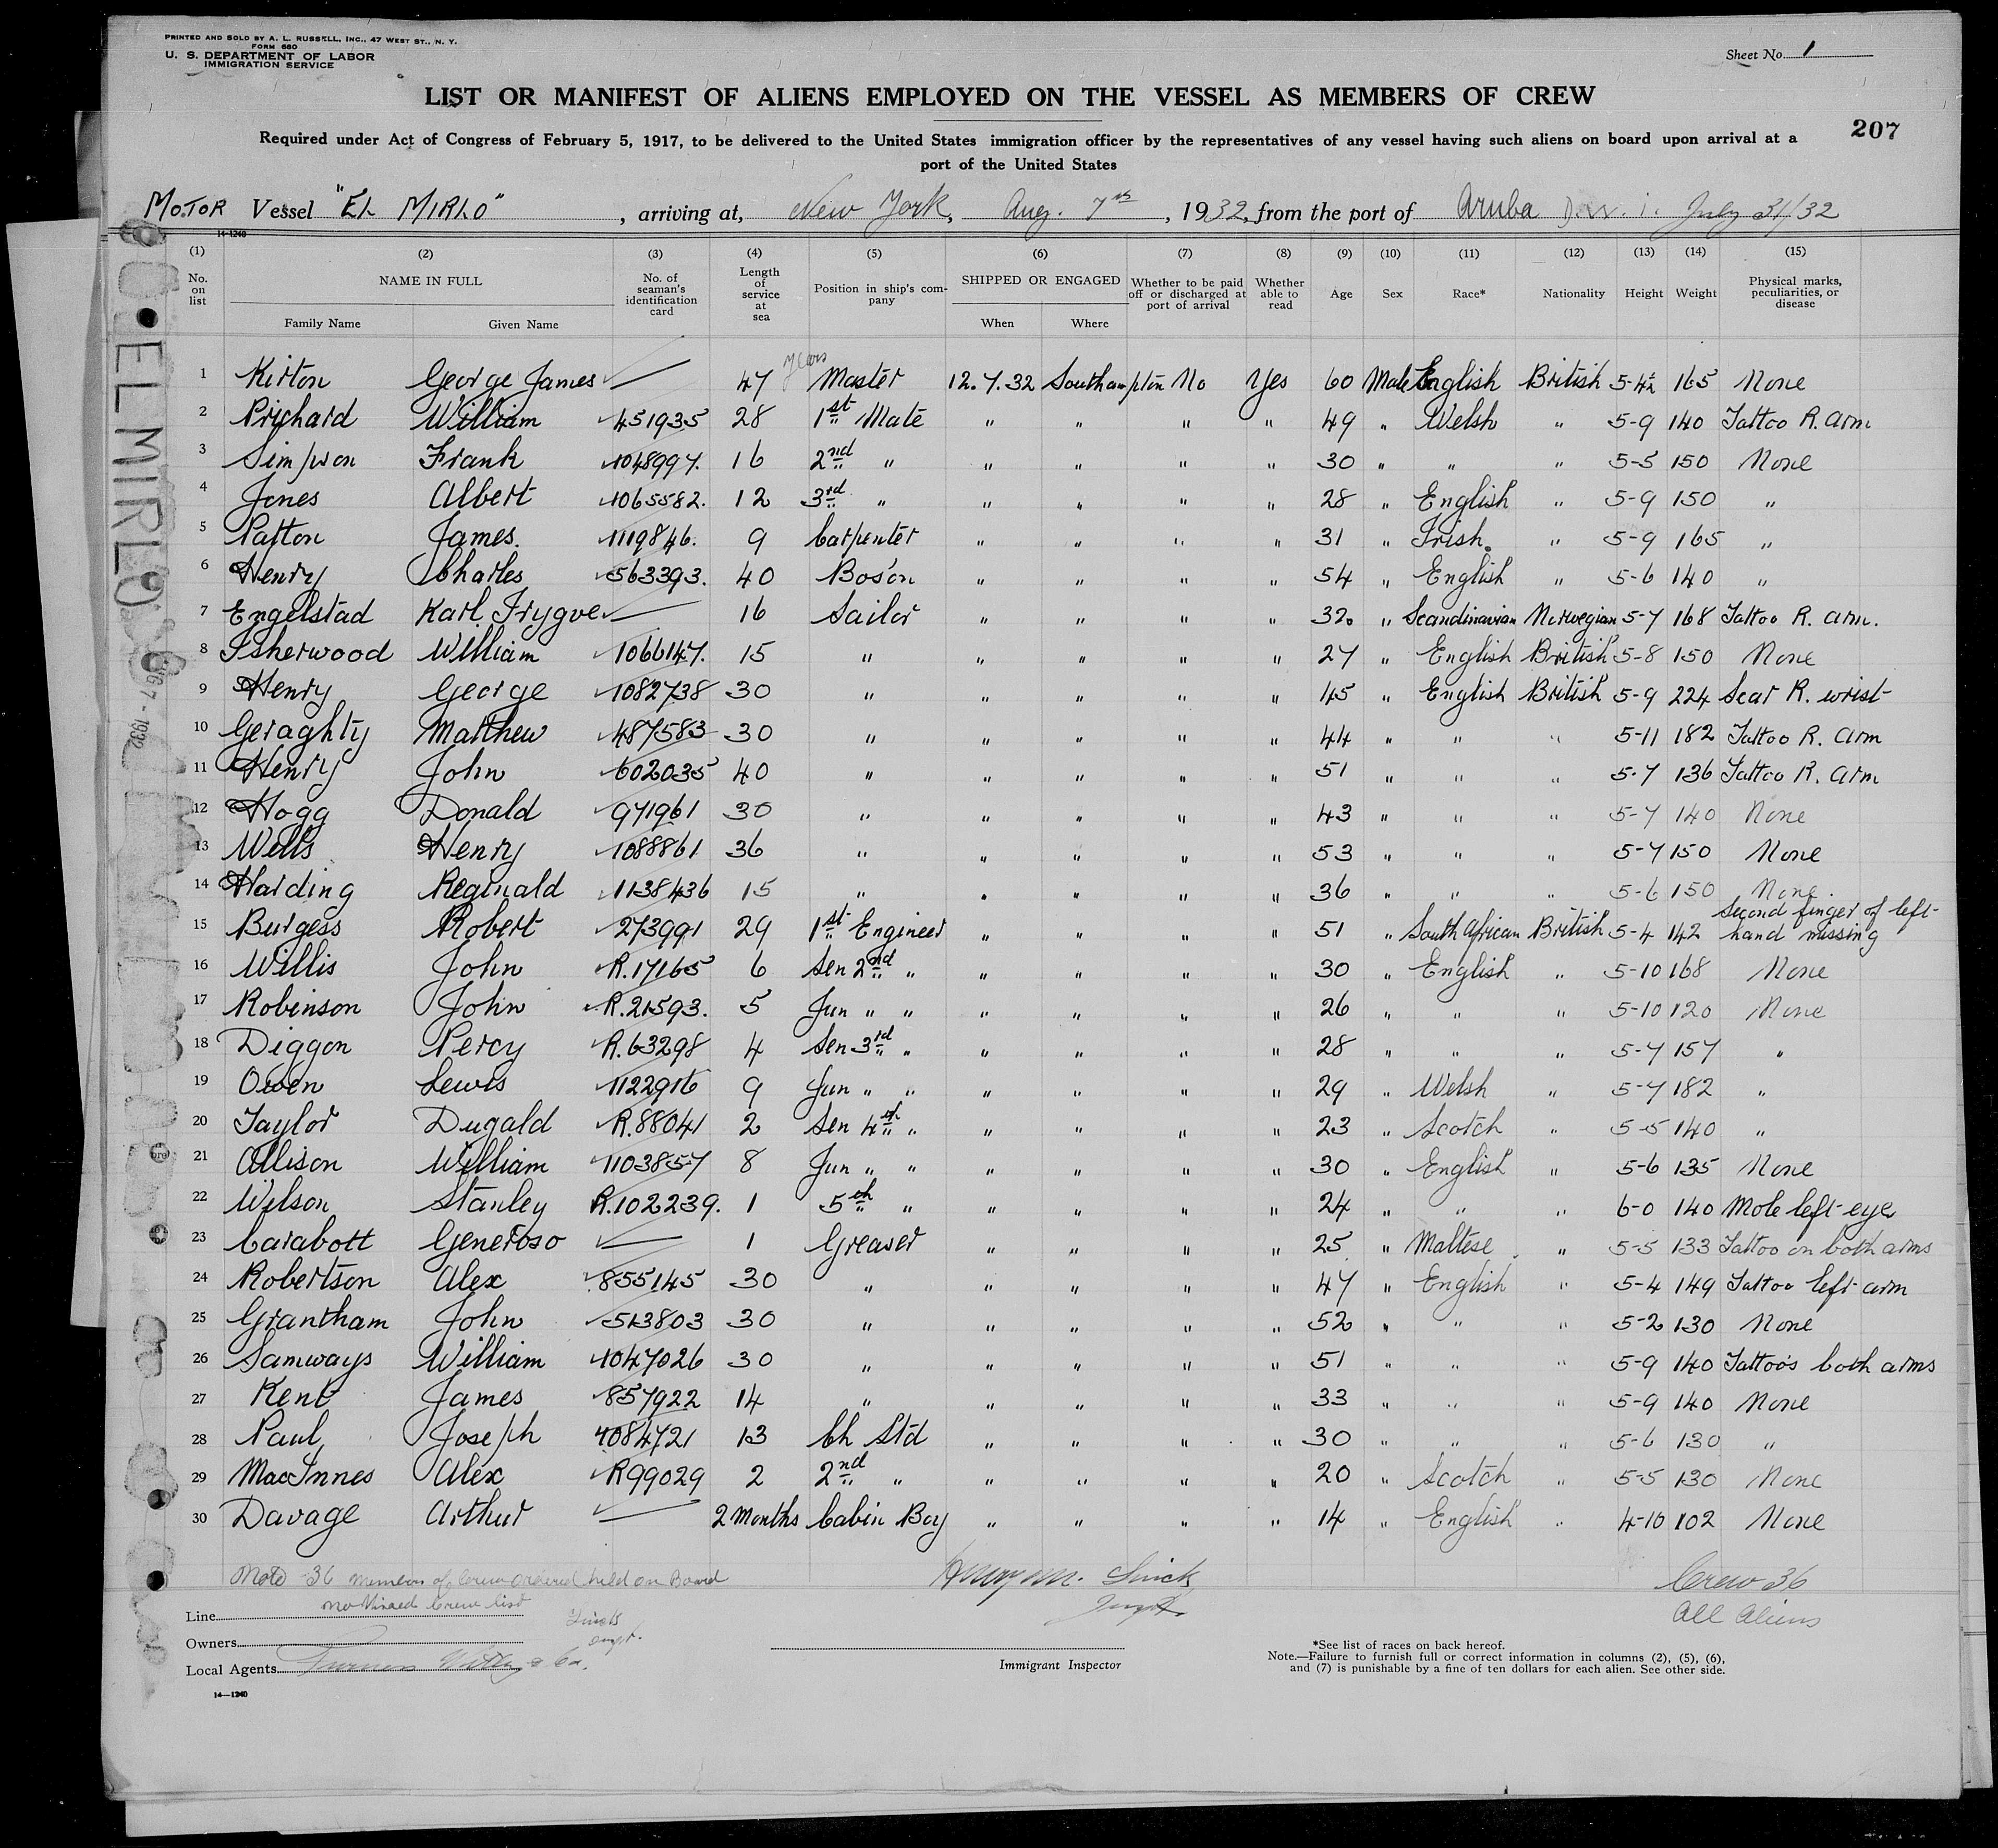 PRINTED AND SOLD BY A. L. RUSSELL, INC., 47 WEST ST., N. Y.
FORM 680
U. S. DEPARTMENT OF LABOR
IMMIGRATION SERVICE
Sheet No. 1
LIST OR MANIFEST OF ALIENS EMPLOYED ON THE VESSEL AS MEMBERS OF CREW
207
Required under Act of Congress of February 5, 1917, to be delivered to the United States immigration officer by the representatives of any vessel having such aliens on board upon arrival at a
port of the United States
MOTOR Vessel "EL MIRLO", arriving at, New York, Aug. 7th, 1932, from the port of Aruba D.W.I. July 31/32
14-1240
(1) (2) (3) (4) (5) (6) (7) (8) (9) (10) (11) (12) (13) (14) (15)
No. on list NAME IN FULL No. of seaman's identification card Length of service at sea Position in ship's company SHIPPED OR ENGAGED Whether to be paid off or discharged at port of arrival Whether able to read Age Sex Race* Nationality Height Weight Physical marks, peculiarities, or disease
Family Name Given Name When Where
years
1 Kirton George James — 47 Master 12.7.32 Southampton No Yes 60 Male English British 5-4½ 165 None
2 Prichard William 451935 28 1st Mate " " " " 49 " Welsh " 5-9 140 Tattoo R. arm
3 Simpson Frank 1048997. 16 2nd " " " " " 30 " " " 5-5 150 None
4 Jones Albert 1065582. 12 3rd " " " " " 28 " English " 5-9 150 "
5 Patton James. 1119846. 9 Carpenter " " " " 31 " Irish. " 5-9 165 "
6 Henry Charles 563393. 40 Bos'on " " " " 54 " English " 5-6 140 "
7 Engelstad Karl Trygve — 16 Sailor " " " " 32. " Scandinavian Norwegian 5-7 168 Tattoo R. arm.
8 Isherwood William 1066147. 15 " " " " " 27 " English British 5-8 150 None
9 Henry George 1082738 30 " " " " " 45 " English British 5-9 224 Scar R. wrist
10 Geraghty Matthew 487583 30 " " " " " 44 " " " 5-11 182 Tattoo R. arm
11 Henry John 602035 40 " " " " " 51 " " " 5-7 136 Tattoo R. arm
12 Hogg Donald 971961 30 " " " " " 43 " " " 5-7 140 None
13 Wells Henry 1088861 36 " " " " " 53 " " " 5-7 150 None
14 Harding Reginald 1138436 15 " " " " " 36 " " " 5-6 150 None.
15 Burgess Robert 273991 29 1st Engineer " " " " 51 " South African British 5-4 142 Second finger of left hand missing
16 Willis John R.17165 6 Sen 2nd " " " " " 30 " English " 5-10 168 None
17 Robinson John R.21593. 5 Jun " " " " " " 26 " " " 5-10 120 None
18 Diggon Percy R.63298 4 Sen 3rd " " " " " 28 " " " 5-7 157 "
19 Owen Lewis 1122916 9 Jun " " " " " " 29 " Welsh " 5-7 182 "
20 Taylor Dugald R.88041 2 Sen 4th " " " " " 23 " Scotch " 5-5 140 "
21 Allison William 1103857 8 Jun " " " " " " 30 " English " 5-6 135 None
22 Wilson Stanley R.102239. 1 5th " " " " " 24 " " " 6-0 140 Mole left eye
23 Carabott Generoso — 1 Greaser " " " " 25 " Maltese " 5-5 133 Tattoo on both arms
24 Robertson Alex 855145 30 " " " " " 47 " English " 5-4 149 Tattoo left arm
25 Grantham John 513803 30 " " " " " 52 " " " 5-2 130 None
26 Samways William 1047026 30 " " " " " 51 " " " 5-9 140 Tattoos both arms
27 Kent James 857922 14 " " " " " 33 " " " 5-9 140 None
28 Paul Joseph 1084721 13 Ch Std " " " " 30 " " " 5-6 130 "
29 MacInnes Alex R99029 2 2nd " " " " " 20 " Scotch " 5-5 130 None
30 Davage Arthur — 2 Months Cabin Boy " " " " 14 " English " 4-10 102 None
Note 36 members of Crew ordered held on Board
No Visaed Crew list
Crew 36
All Aliens
Line
Owners
Local Agents Furness Withy & Co.
Immigrant Inspector
*See list of races on back hereof.
Note.—Failure to furnish full or correct information in columns (2), (5), (6),
and (7) is punishable by a fine of ten dollars for each alien. See other side.
14—1240
EL MIRLO
1932